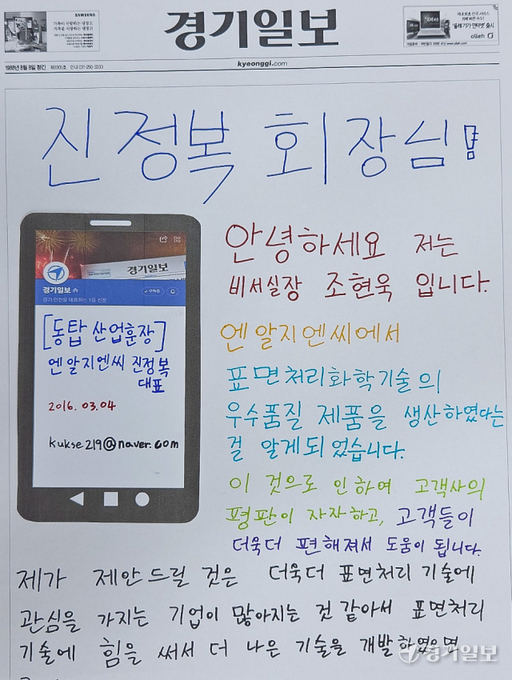 SAMSUNG
경기일보
kyeonggi.com
olleh
진정복 회장님!
경기일보
[동탑 산업훈장]
엔알지엔씨 진정복
대표
2016. 03. 04
kukse219@naver.com
안녕하세요 저는
비서실장 조현욱 입니다.
엔알지엔씨에서
표면처리화학기술의
우수품질 제품을 생산하였다는
걸 알게되었습니다.
이 것으로 인하여 고객사의
평판이 자자하고, 고객들이
더욱더 편해져서 도움이 됩니다.
제가 제안드릴 것은 더욱더 표면처리 기술에
관심을 가지는 기업이 많아지는 것 같아서 표면처리
기술에 힘을 써서 더 나은 기술을 개발하였으면
경기일보